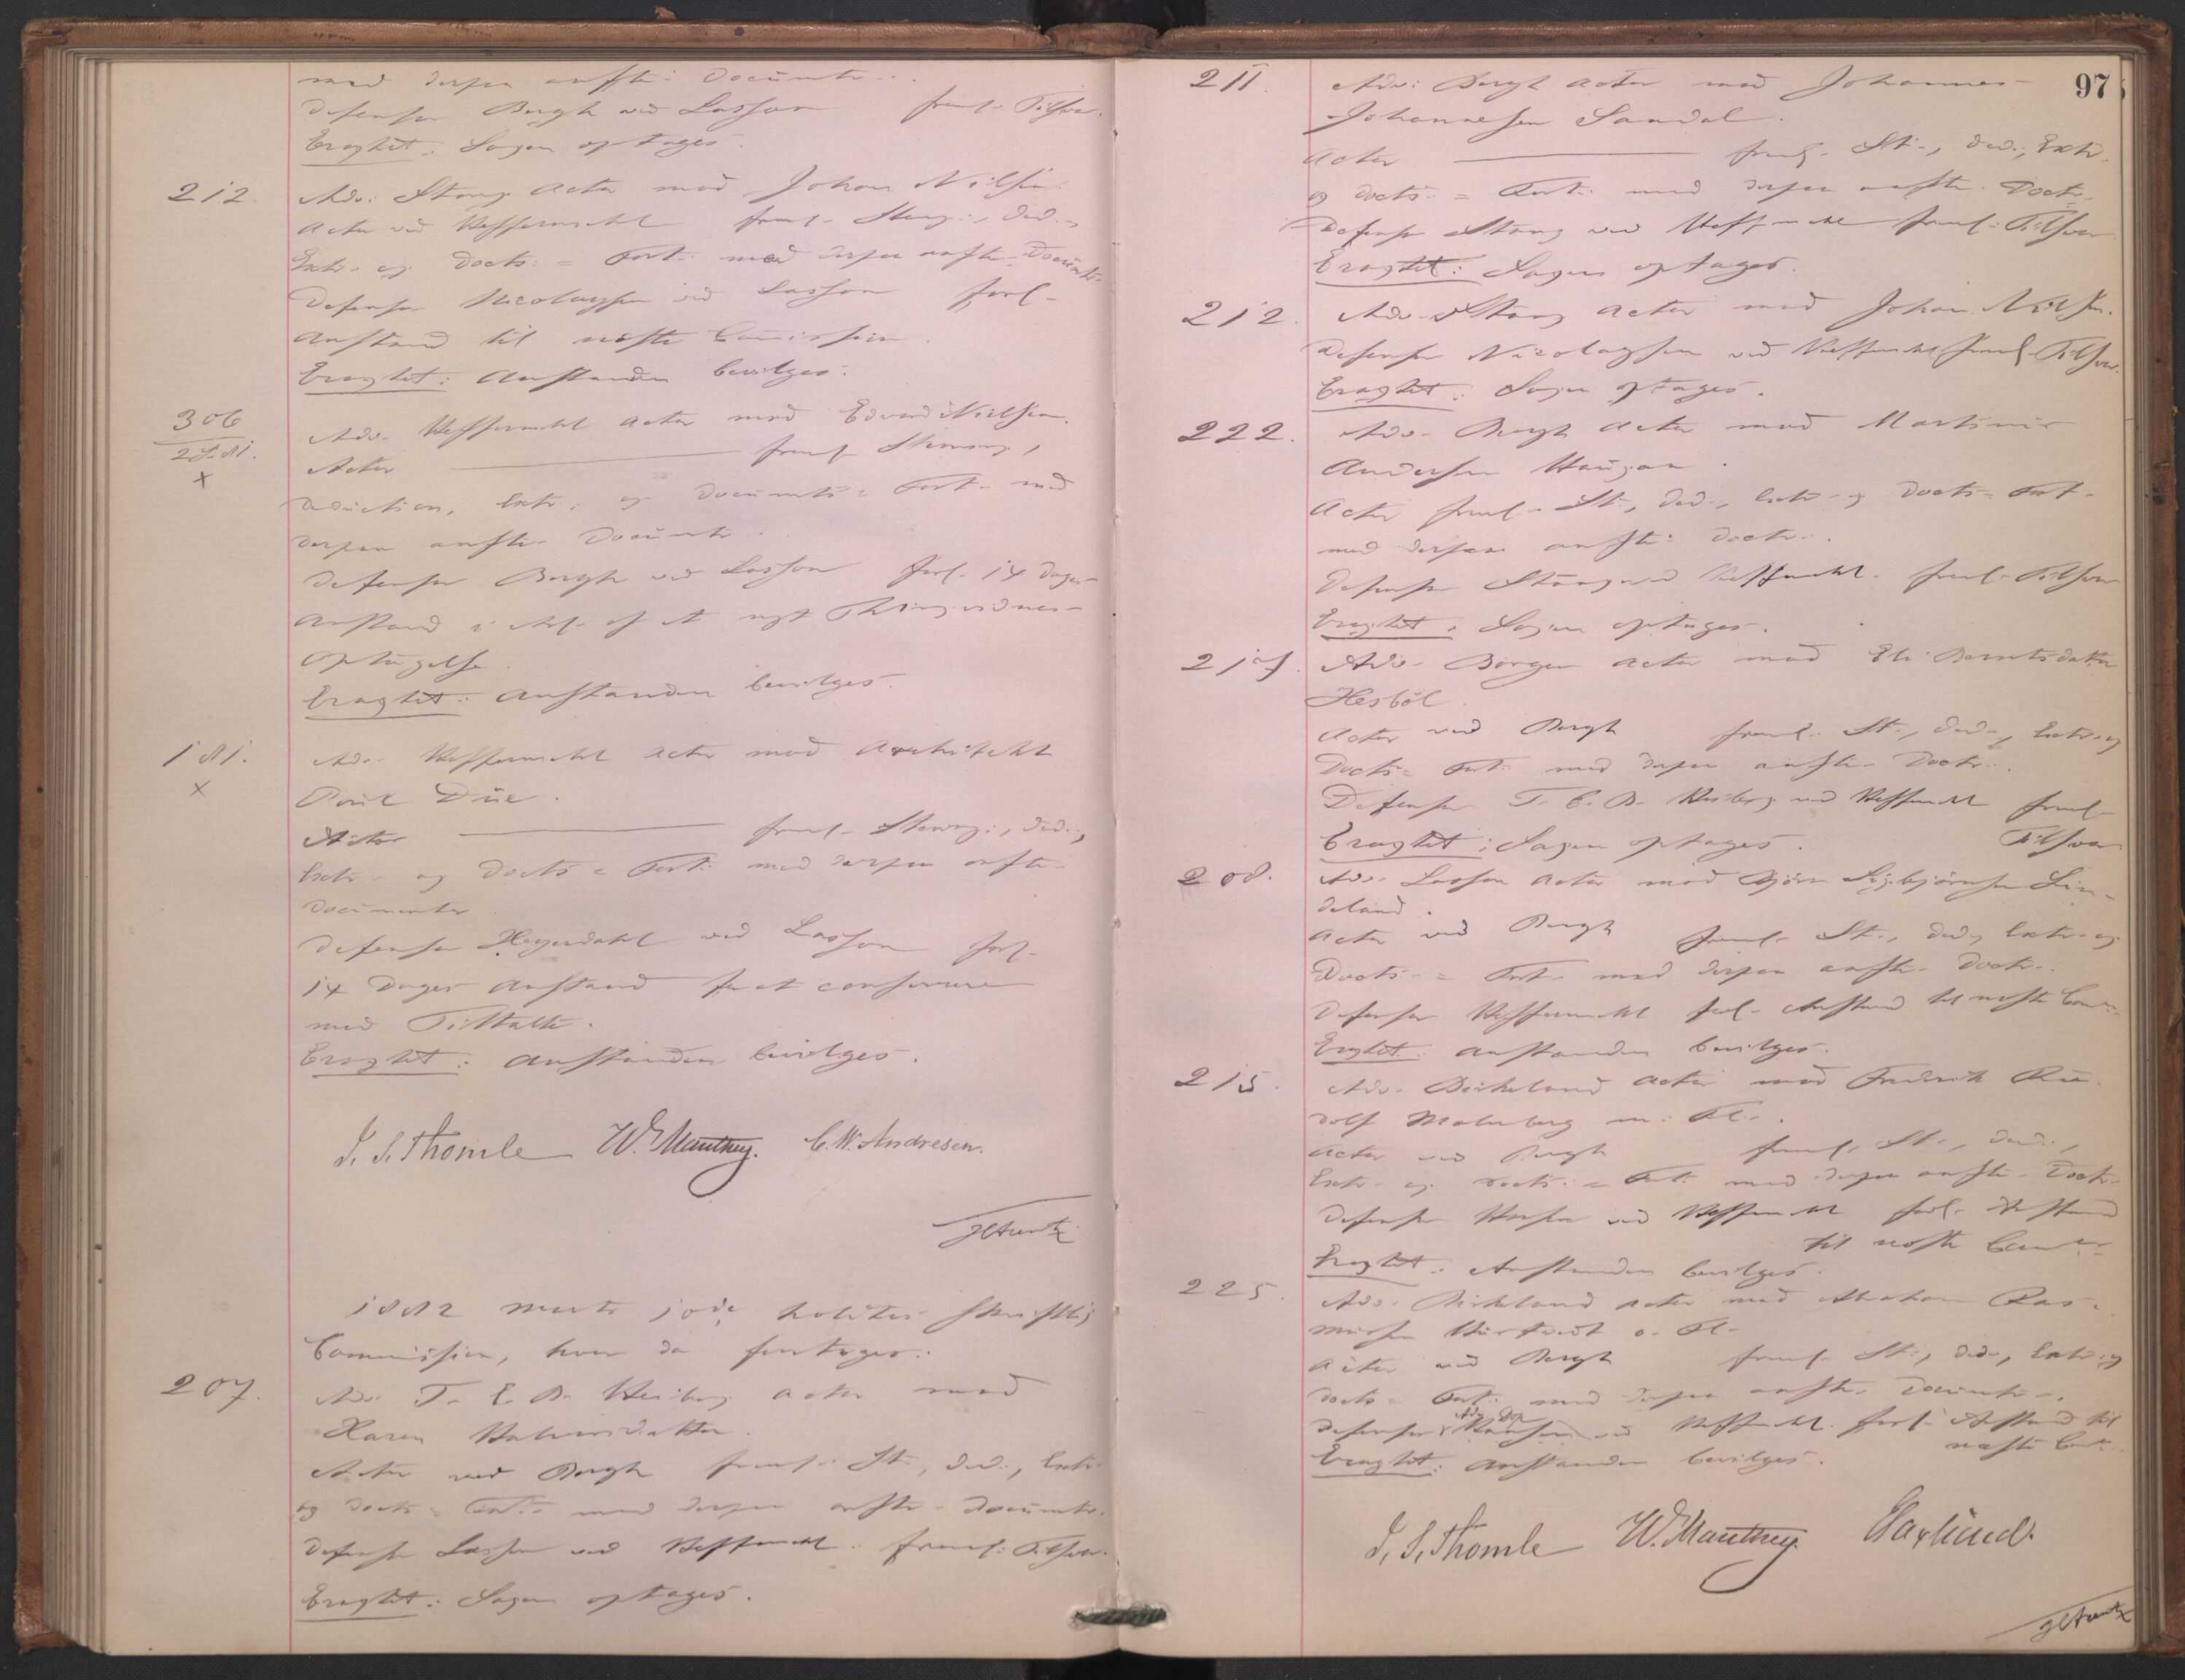 med derpaa anfte: Documtr..
Defensor Bergh ved Lasson freml- Tilsvar.
Eragtet: Sagen optages.
212. Adv: Stang Actor mod Johan Nilsen.
Actor ved Hessenmehl freml- Stævng:, Ded.,
Extr- og Docts:= Fort: med derpaa anfte- Documtr.
Defensor Nicolaysen ved Lasson forl-
Anstand til næste Commission.
Eragtet: Anstanden bevilges.
306
28-81.
x
Adv- Actor mod Edvard Nielsen.
Actor freml- Stævng,
Deduction, Extr: og Documts= Fort- med
derpaa anfte- Documtr..
Defensor Bergh ved Lasson forl- 14 Dages
Anstand i Anl- af et nyt Thingvidnes-
optagelse.
Eragtet: Anstanden bevilges.
181. Adv- Actor mod Architekt
x
Poul Due.
Actor freml- Stævng:, Ded.,
Extr- og Docts= Fort: med derpaa anfte-
Documenter.
Defensor Heyerdahl ved Lasson forl-
14 Dages Anstand for at conferere
med Tiltalte.
Eragtet: Anstanden bevilges.
S. S. Thomle W. Manthey. C. W. Andresen.
1882 Marts holdtes skriftlig
Commission, hvor da foretoges:
207. Adv. T. E. B. Heiberg Actor mod
Karen Halvorsdatter.
Actor ved Bergh freml- St-, Ded., Extr-
og Docts= Fort- med derpaa anfte- Documtr.
Defensor Lasson ved freml: Tilsvar.
Eragtet: Sagen optages.
97
211. Adv: Bergh Actor mod Johannes
Johannesen Sandal.
Actor freml- St-, Ded., Extr.
og Docts:= Fort: med derpaa anfte. Doctr-
Defensor Stang ved freml: Tilsvar
Eragtet: Sagen optages.
212. Adv- Stang Actor mod Johan Nilsen.
Defensor Nicolaysen ved freml- Tilsvar.
Eragtet: Sagen optages.
222. Adv- Bergh Actor mod Martinus
Andersen Haugan.
Actor freml- St-, Ded-, Extr- og Docts= Fort-
med derpaa anfte: Doctr..
Defensor Stang ved freml- Tilsvar
Eragtet: Sagen optages.
217. Adv- Borgen Actor mod Eli Berntsdatter
Hesböl.
Actor ved Bergh freml- St-, Ded-, Extr- og
Docts= Fort: med derpaa anfte- Doctr..
Defensor T. E. B. Heiberg ved freml-
Eragtet: Sagen optages. Tilsvar
208. Adv- Lasson Actor mod Björn Sigbjörnsen Lin-
deland.
Actor ved Bergh freml- St-, Ded-, Extr- og
Docts-= Fort- med derpaa anfte- Doctr-.
Defensor forl- Anstand til næste Com
Eragtet: Anstanden bevilges.
215. Adv- Birkeland Actor mod Fredrik Ru-
dolf Malmberg m: Fl-.
Actor ved Bergh freml- St-, Ded.,
Extr- og Docts:= Fort: med derpaa anfte- Doctr-
Defensor ved forl- Anstand
til næste Com
Eragtet: Anstanden bevilges.
225. Adv. Birkeland Actor mod Abraham Ras-
mussen o. Fl-
Actor ved Bergh freml- St-, Ded-, Extr- og
Docts= Fort: med derpaa anfte- Documtr-.
Defensor ved forl- Anstand til
næste Com
Eragtet: Anstanden bevilges.
S. S. Thomle W. Manthey.